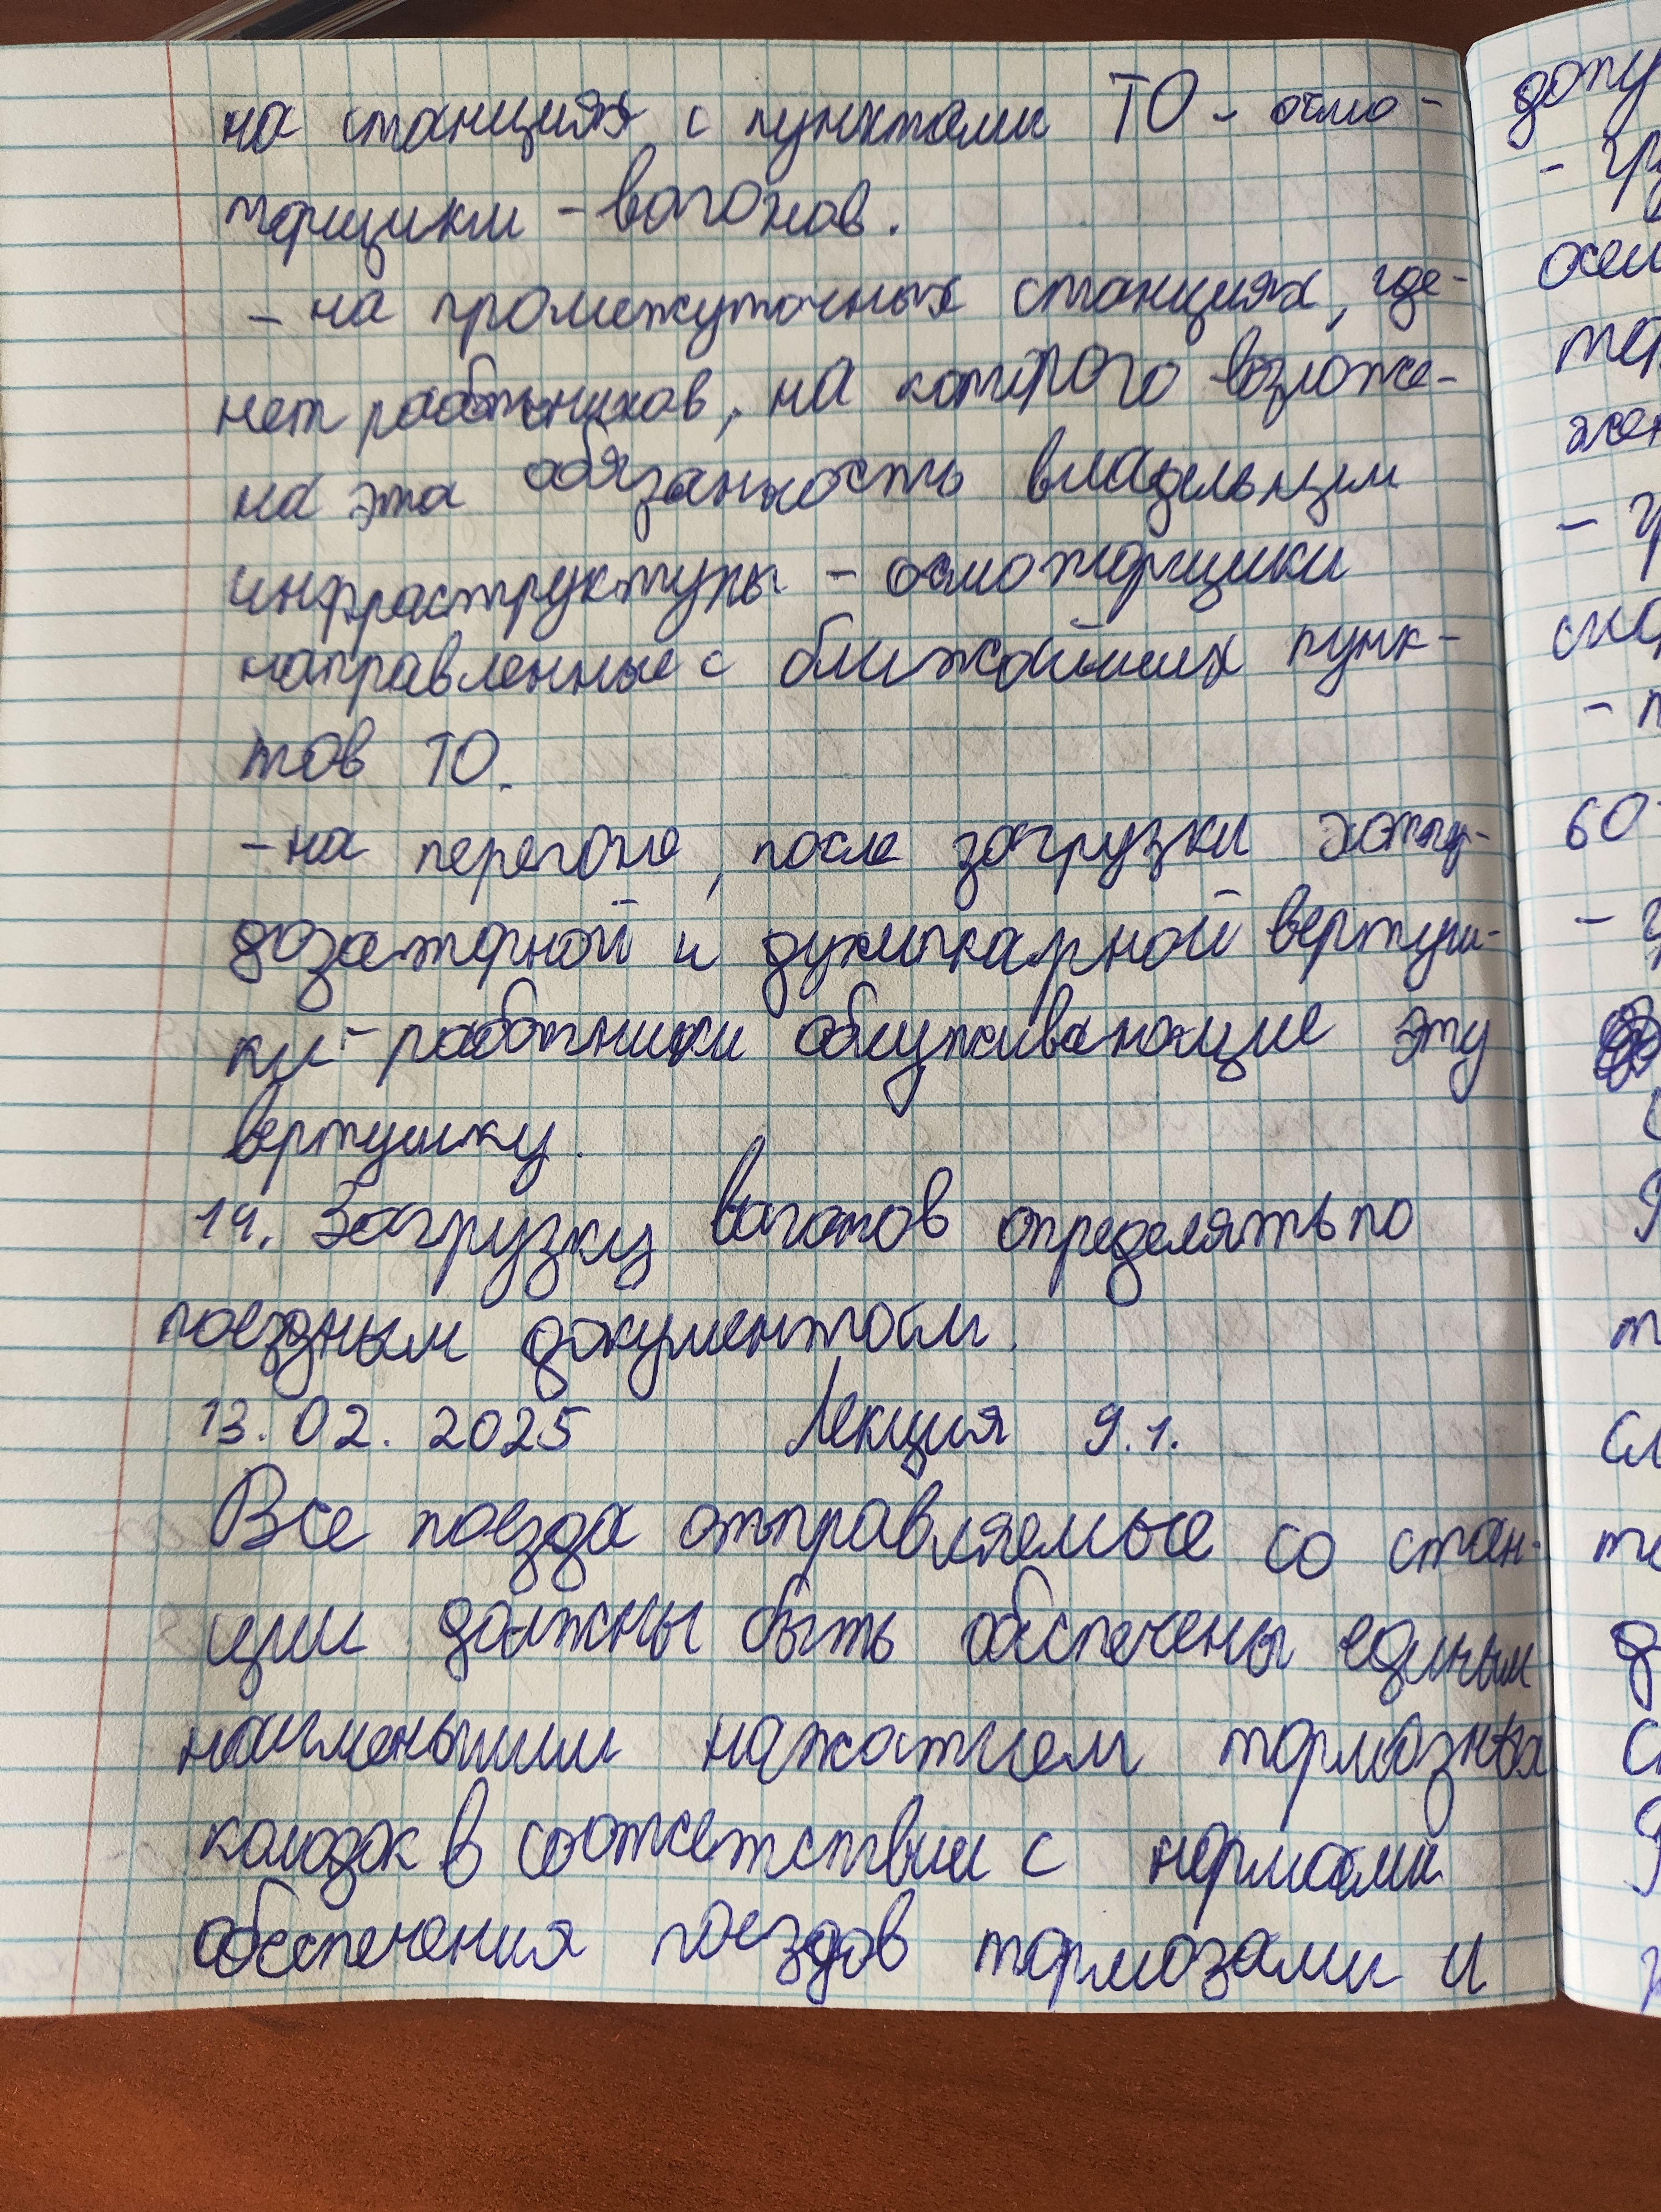 на станциях с пунктами ТО - осмо-
торщики - вагонов.
- на промежуточных станциях, где-
нет работников, на которого возложе-
на эта обязанность владельцем
инфраструктуры - осмоторщики
направленные с ближайших пунк-
тов ТО.
- на перегоне, после загрузки хоппер-
дозаторной и думпкарной вертуш-
ки - работники обслуживающие эту
вертушку.
14. Загрузку вагонов определять по
поездным документам.
13.02.2025 Лекция 9.1.
Все поезда отправляемые со стан-
ции должны быть обеспечены единым
наименьшим нажатием тормозных
колодок в соответствии с нормами
обеспечения поездов тормозами и
допу
- гру
осей
тор
жен
- г
ско
- п
60